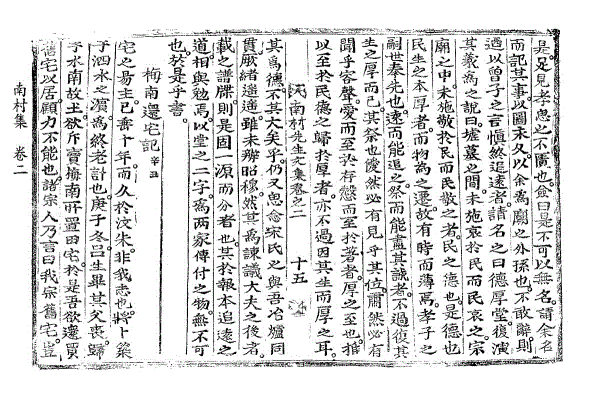 是足見孝思之不匱也。僉曰是不可以無名。請余名
而記其事以圖永久以余爲廟之外孫也。不敢辭則
迺以曾子之言愼終追遠者請名之曰德厚堂復演
其義爲之說曰墟墓之間未施哀於民而民哀之宗
廟之中未施敬於民而民敬之者民之德也是德也
民生之本厚者而物爲之遷故有時而薄焉孝子之
嗣世奉先也遠而能追之祭而能盡其誠者不過復其
生之厚而已其祭也僾然必有見乎其位肅然必有
聞乎容聲愛而至於存慤而至於著者厚之至也推
以至於民德之歸於厚者亦不過因其生而厚之耳
南村先生文集卷之二 十五
其爲德不其大矣乎仍又思念宋氏之與吾冶爐同
貫厥緖遙遙雖未辨昭穆然其爲諫議大夫之後者
載之譜牒則是固一源而分者也其於報本追遠之
道相與勉焉以堂之二字爲兩家傳付之物無不可
也於是乎書
梅南還宅記 辛丑
宅之易主已垂十年而久於汶朱非我志也將卜築
于泗水之濱爲終老計也庚子冬呂生畢其父喪歸
于水南故土欲斥賣梅南所置田宅於是吾欲還買
舊宅以居顧力不能也諸宗人乃言曰我宗舊宅豈
南村集 卷二